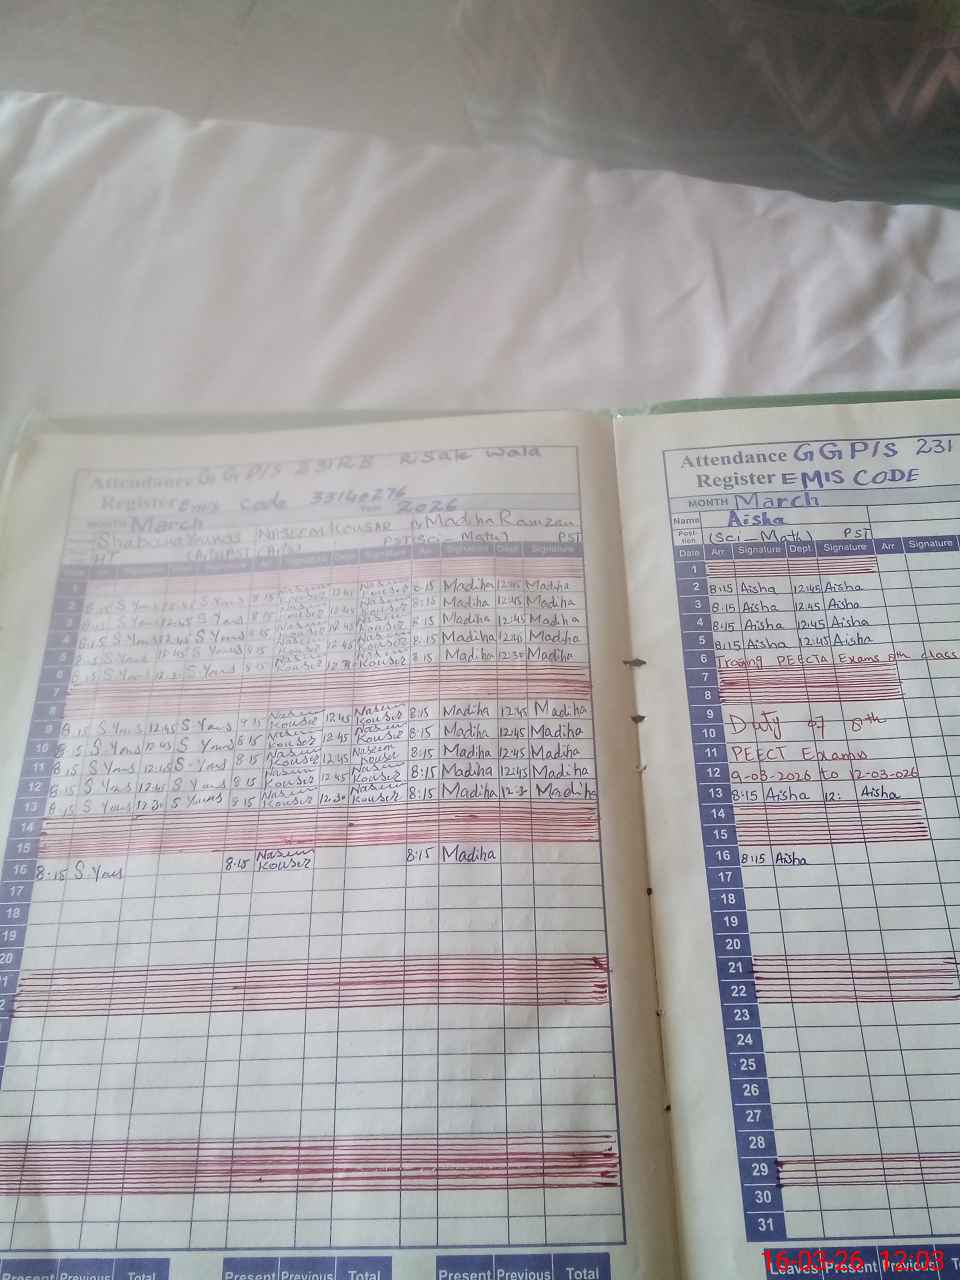 Attendance GGP/S 231RB Risale wala
Register Emis Code 33140276
MONTH March 2026
Shabana Younas NASEEM KOUSAR Madiha Ramzan
HT (Arts) PST (Arts) PST (Sci-Math) PST
Arr Signature Dept Signature
1
2 8:15 S Yous 12:45 S Yous 8:15 Naseem Kouser 12:45 Naseem Kouser 8:15 Madiha 12:45 Madiha
3 8:15 S Yous 12:45 S Yous 8:15 Naseem Kouser 12:45 Naseem Kouser 8:15 Madiha 12:45 Madiha
4 8:15 S Yous 12:45 S Yous 8:15 Naseem Kouser 12:45 Naseem Kouser 8:15 Madiha 12:45 Madiha
5 8:15 S Yous 12:45 S Yous 8:15 Naseem Kouser 12:45 Naseem Kouser 8:15 Madiha 12:45 Madiha
6 8:15 S Yous 12:30 S Yous 8:15 Naseem Kouser 12:30 Naseem Kouser 8:15 Madiha 12:30 Madiha
7
8
9 8:15 S Yous 12:45 S Yous 8:15 Naseem Kouser 12:45 Naseem Kouser 8:15 Madiha 12:45 Madiha
10 8:15 S Yous 12:45 S Yous 8:15 Naseem Kouser 12:45 Naseem Kouser 8:15 Madiha 12:45 Madiha
11 8:15 S Yous 12:45 S Yous 8:15 Naseem Kouser 12:45 Naseem Kouser 8:15 Madiha 12:45 Madiha
12 8:15 S Yous 12:45 S Yous 8:15 Naseem Kouser 12:45 Naseem Kouser 8:15 Madiha 12:45 Madiha
13 8:15 S Yous 12:30 S Yous 8:15 Naseem Kouser 12:30 Naseem Kouser 8:15 Madiha 12:30 Madiha
14
15
16 8:15 S.Yous 8:15 Naseem Kouser 8:15 Madiha
17
18
19
20
Present Previous Total Present Previous Total Present Previous Total
Attendance GGP/S 231
Register EMIS CODE
MONTH March
Name Aisha
Posi-tion (Sci-Math) PST
Date Arr Signature Dept. Signature Arr Signature
1
2 8:15 Aisha 12:45 Aisha
3 8:15 Aisha 12:45 Aisha
4 8:15 Aisha 12:45 Aisha
5 8:15 Aisha 12:45 Aisha
6 Training PEECTA Exams 8th class
7
8
9 Duty of 8th
10
11 PEECT Exams
12 9-03-2026 to 12-03-026
13 8:15 Aisha 12: Aisha
14
15
16 8:15 Aisha
17
18
19
20
21
22
23
24
25
26
27
28
29
30
31
Leaves Present Previous
16-03-26 12:03